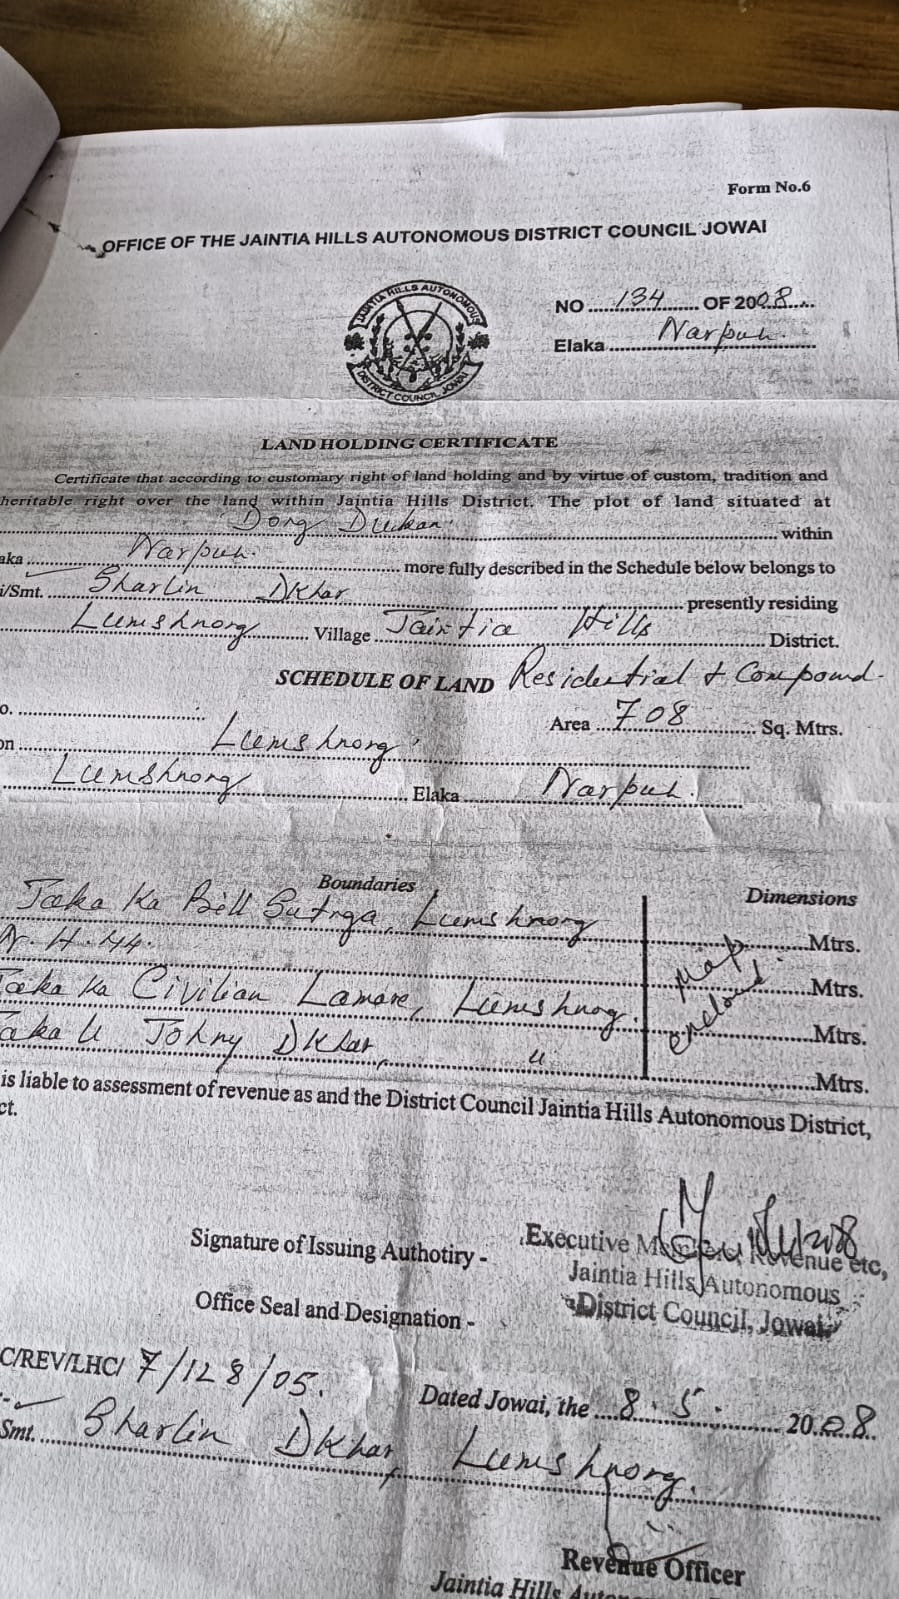 Form No.6
OFFICE OF THE JAINTIA HILLS AUTONOMOUS DISTRICT COUNCIL JOWAI
JAINTIA HILLS AUTONOMOUS
DISTRICT COUNCIL JOWAI
NO ......134........ OF 2008......
Elaka ........Narpuh.........
LAND HOLDING CERTIFICATE
Certificate that according to customary right of land holding and by virtue of custom, tradition and
heritable right over the land within Jaintia Hills District. The plot of land situated at
Dong Dukan. ........ within
aka ........ Narpuh. ........ more fully described in the Schedule below belongs to
i/Smt. Sharlin Dkhar ........ presently residing
Lumshnong ........ Village ... Jaintia Hills ........ District.
SCHEDULE OF LAND Residential & Compound.
o. ........ Area ... 708 ........ Sq. Mtrs.
on ........ Lumshnong
Lumshnong ........ Elaka ........ Narpuh.
Boundaries Dimensions
Jaka Ka Bell Sutnga, Lumshnong ........ Mtrs.
N.H.44. ........ Mtrs.
Jaka Ka Civilian Lamare, Lumshnong. ........ Mtrs.
aka U Johny Dkhar, " ........ Mtrs.
Map enclosed.
is liable to assessment of revenue as and the District Council Jaintia Hills Autonomous District,
ct.
Signature of Issuing Authotiry -
Executive Revenue etc,
Jaintia Hills Autonomous
Office Seal and Designation -
District Council, Jowai
C/REV/LHC/ 7/128/05.
Dated Jowai, the ... 8.5. ........ 2008.
Smt. ... Sharlin Dkhar, Lumshnong.
Revenue Officer
Jaintia Hills